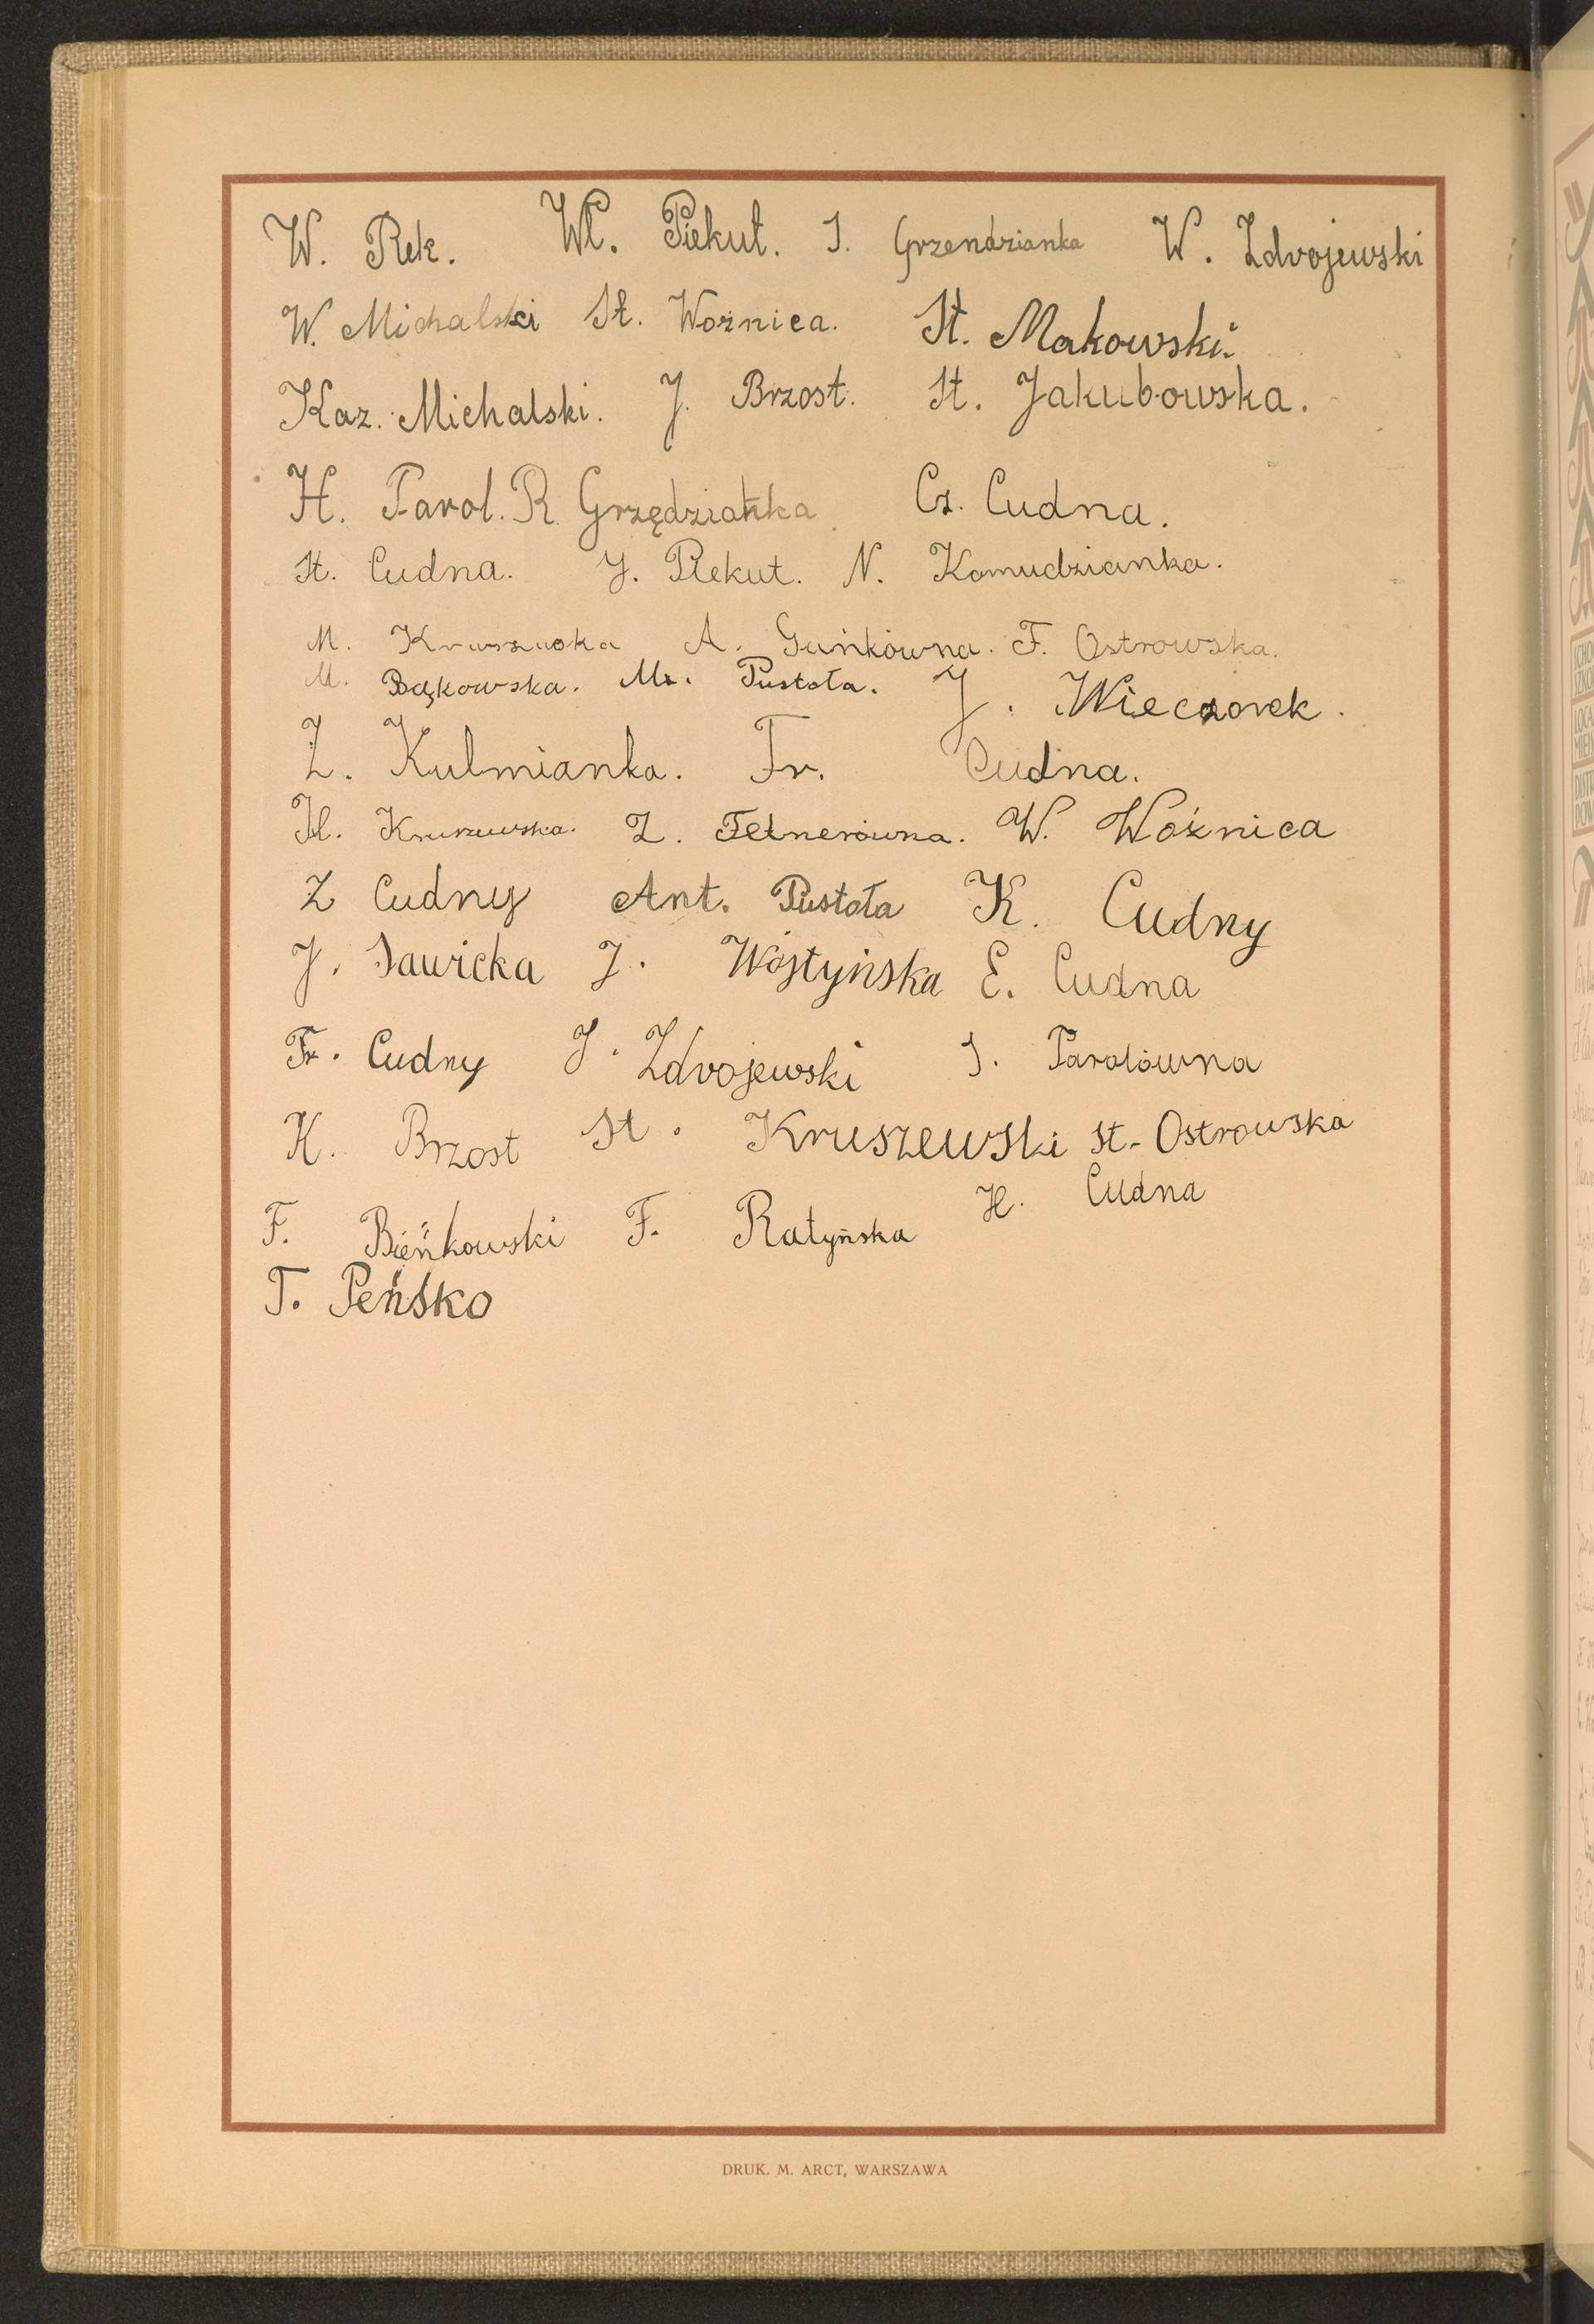 W. Rek. Wł. Piekut. J. Grzendzianka W. Zdrojewski
W. Michalski St. Woźnica. St. Makowski.
Kaz. Michalski. J. Brzost. St. Jakubowska.
H. Parol. R. Grzędzianka. Cz. Cudna.
St. Cudna. J. Piekut. N. Komudzianka.
M. Kruszewska A. Guńkówna. F. Ostrowska.
M. Bąkowska. M. Pustoła. J. Wieczorek.
Z. Kulmianka. Fr. Cudna.
H. Kruszewska. Z. Fetnerówna. W. Woźnica
Z Cudny Ant. Pustoła K. Cudny
J. Sawicka J. Wójtyńska E. Cudna
Fr. Cudny J. Zdrojewski J. Parolówna
K. Brzost St. Kruszewski St. Ostrowska
F. Bieńkowski F. Ratyńska H. Cudna
T. Peńsko
DRUK. M. ARCT, WARSZAWA